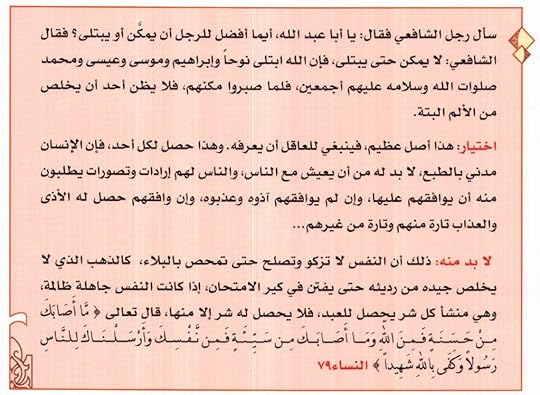 سأل رجل الشافعي فقال: يا أبا عبد الله، أيما أفضل للرجل أن يمكَّن أو يبتلى؟ فقال
الشافعي: لا يمكن حتى يبتلى، فإن الله ابتلى نوحاً وإبراهيم وموسى وعيسى ومحمد
صلوات الله وسلامه عليهم أجمعين، فلما صبروا مكنهم، فلا يظن أحد أن يخلص
من الألم البتة.
اختيار: هذا أصل عظيم، فينبغي للعاقل أن يعرفه. وهذا حصل لكل أحد، فإن الإنسان
مدني بالطبع، لا بد له من أن يعيش مع الناس، والناس لهم إرادات وتصورات يطلبون
منه أن يوافقهم عليها، وإن لم يوافقهم آذوه وعذبوه، وإن وافقهم حصل له الأذى
والعذاب تارة منهم وتارة من غيرهم...
لا بد منه: ذلك أن النفس لا تزكو وتصلح حتى تمحص بالبلاء، كالذهب الذي لا
يخلص جيده من رديئه حتى يفتن في كير الامتحان، إذا كانت النفس جاهلة ظالمة،
وهي منشأ كل شر يحصل للعبد، فلا يحصل له شر إلا منها، قال تعالى ﴿ مَّا أَصَابَكَ
مِنْ حَسَنَةٍ فَمِنَ اللَّهِ وَمَا أَصَابَكَ مِن سَيِّئَةٍ فَمِن نَّفْسِكَ وَأَرْسَلْنَاكَ لِلنَّاسِ
رَسُولاً وَكَفَى بِاللَّهِ شَهِيداً ﴾ النساء٧٩